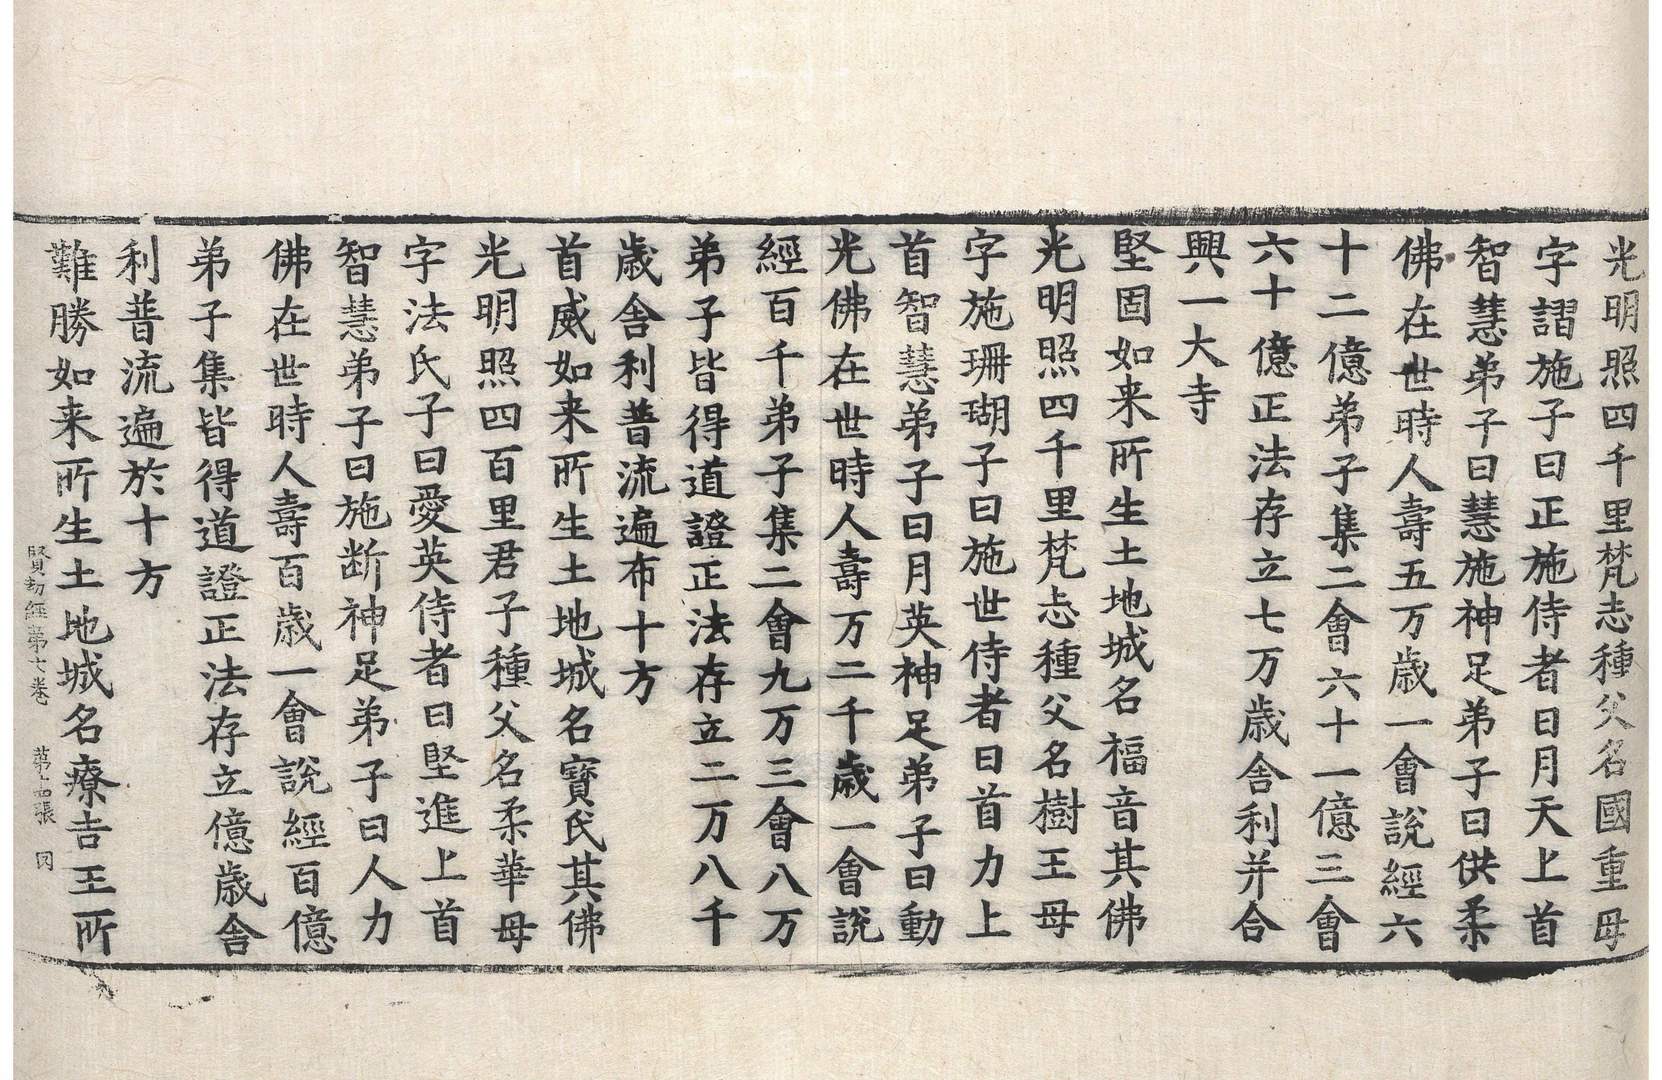 光明照四千里梵志種父名國重母
字謵施子曰正施侍者曰月天上首
智慧弟子曰慧施神足弟子曰供柔
佛在世時人壽五万歳一會說經六
十二億弟子集二會六十一億三會
六十億正法存立七万歳舎利并合
興一大寺
堅固如来所生土地城名福音其佛
光明照四千里梵志種父名樹王母
字施珊瑚子曰施世侍者曰首力上
首智慧弟子曰月英神足弟子曰動
光佛在世時人壽万二千歳一會說
經百千弟子集二會九万三會八万
弟子皆得道證正法存立二万八千
歳舎利普流遍布十方
首威如来所生土地城名寶氏其佛
光明照四百里君子種父名柔華母
字法氏子曰愛英侍者曰堅進上首
智慧弟子曰施断神足弟子曰人力
佛在世時人壽百歳一會說經百億
弟子集皆得道證正法存立億歳舎
利普流遍於十方
難勝如来所生土地城名療吉王所
賢劫經第七卷 第十四張 因